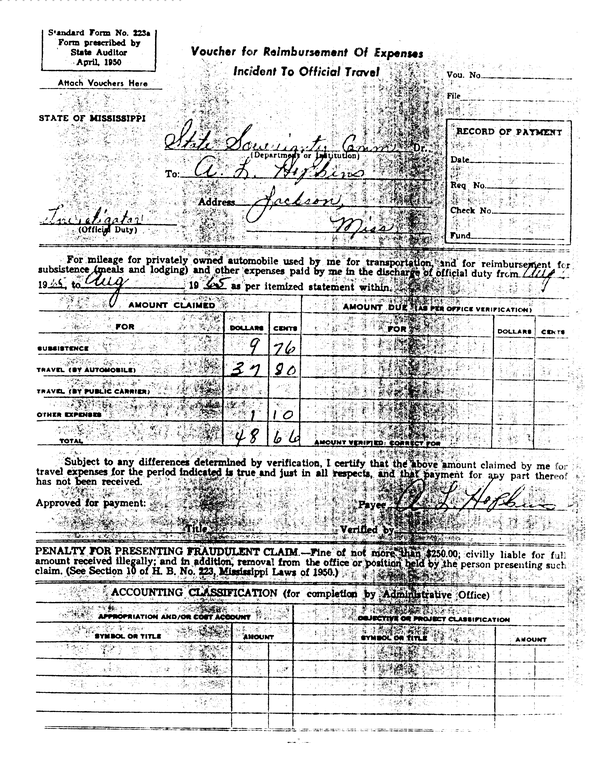 Standard Form No. 223a
Form prescribed by
State Auditor
April, 1950
Attach Vouchers Here
Voucher for Reimbursement Of Expenses
Incident To Official Travel
Vou. No.
File
STATE OF MISSISSIPPI
RECORD OF PAYMENT
Date
Req No.
Check No.
Fund
State Sovereignty Comm Dr.
(Department or Institution)
To: A. L. Hopkins
Address Jackson,
Miss
Investigator
(Official Duty)
For mileage for privately owned automobile used by me for transportation, and for reimbursement for
subsistence (meals and lodging) and other expenses paid by me in the discharge of official duty from Aug
1965, to Aug 1965 as per itemized statement within.
AMOUNT CLAIMED AMOUNT DUE (AS PER OFFICE VERIFICATION)
FOR DOLLARS CENTS FOR DOLLARS CENTS
SUBSISTENCE 9 76
TRAVEL (BY AUTOMOBILE) 37 80
TRAVEL (BY PUBLIC CARRIER)
OTHER EXPENSES 1 10
TOTAL 48 66 AMOUNT VERIFIED: CORRECT FOR
Subject to any differences determined by verification, I certify that the above amount claimed by me for
travel expenses for the period indicated is true and just in all respects, and that payment for any part thereof
has not been received.
Approved for payment: Payee A. L. Hopkins
Title Verified by
PENALTY FOR PRESENTING FRAUDULENT CLAIM.—Fine of not more than $250.00; civilly liable for full
amount received illegally; and in addition, removal from the office or position held by the person presenting such
claim. (See Section 10 of H. B. No. 223, Mississippi Laws of 1950.)
ACCOUNTING CLASSIFICATION (for completion by Administrative Office)
APPROPRIATION AND/OR COST ACCOUNT OBJECTIVE OR PROJECT CLASSIFICATION
SYMBOL OR TITLE AMOUNT SYMBOL OR TITLE AMOUNT